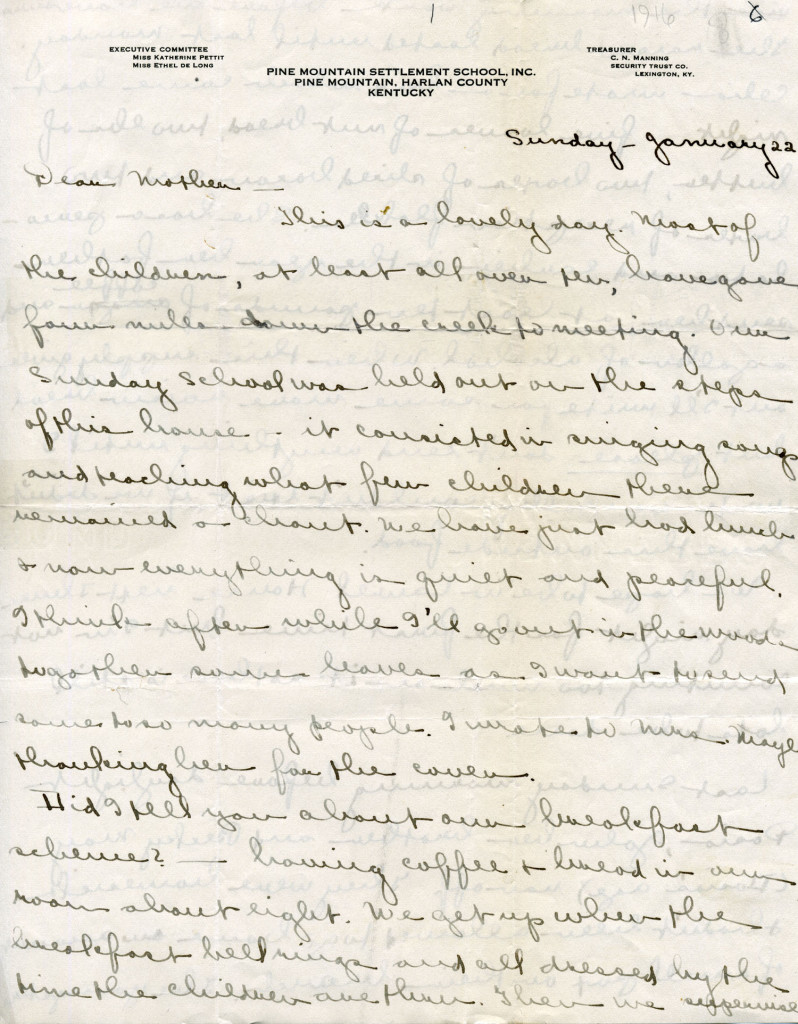 1 1916 6
EXECUTIVE COMMITTEE
MISS KATHERINE PETTIT
MISS ETHEL DE LONG
TREASURER
C. N. MANNING
SECURITY TRUST CO.
LEXINGTON, KY.
PINE MOUNTAIN SETTLEMENT SCHOOL, INC.
PINE MOUNTAIN, HARLAN COUNTY
KENTUCKY
Sunday - January 22
Dear Mother -
This is a lovely day. Most of
the children, at least all over ten, have gone
four miles down the creek to meeting. Our
Sunday School was held out on the steps
of this house - it consisted in singing songs
and teaching what few children there
remained a chant. We have just had lunch
& now everything is quiet and peaceful.
I think after while I'll go out in the woods
to gather some leaves as I want to send
some to so many people. I wrote to Mrs.
thanking her for the cover.
Did I tell you about our breakfast
scheme? - having coffee & bread in our
room about eight. We get up when the
breakfast bell rings and all dressed by the
time the children are thru. Then we supervise